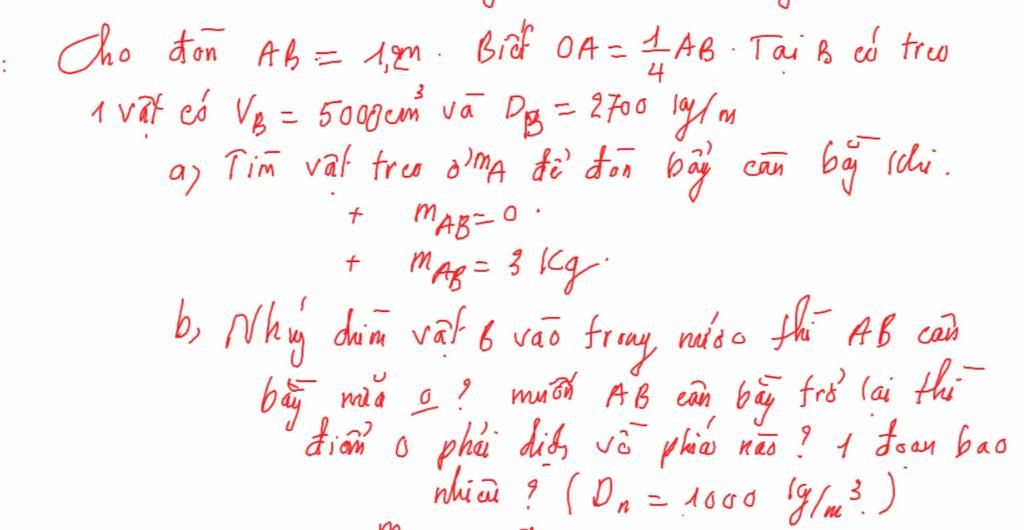 : Cho đòn AB = 1,2m. Biết OA = 1/4 AB. Tại B có treo
1 vật có V_B = 5000cm³ và D_B = 2700 kg/m
a) Tìm vật treo ở m_A để đòn bẩy cân bằng khi.
+ m_AB = 0.
+ m_AB = 3 kg.
b, Nhúng chìm vật B vào trong nước thì AB cân
bằng nữa o? muốn AB cân bằng trở lại thì
điểm O phải dịch về phía nào? 1 đoạn bao
nhiêu? (D_n = 1000 kg/m³)